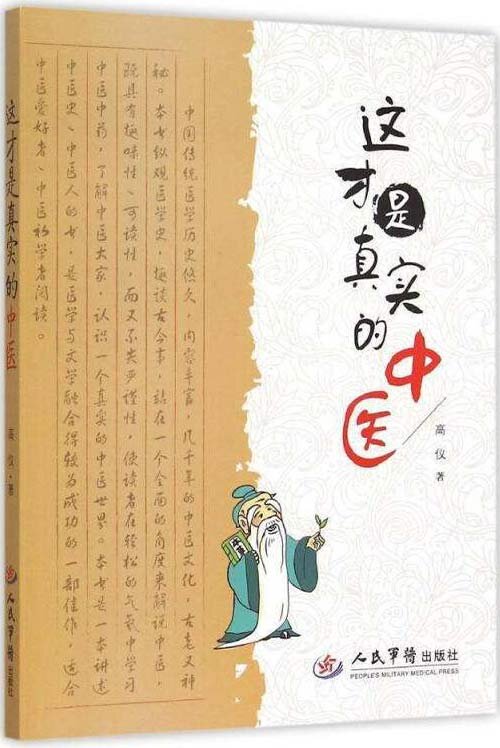 这才是真实的中医
高仪 著
中国传统医学历史悠久，内容丰富，几千年的中医文化，古老又神
秘。本书纵观医学史，漫谈古今事，站在一个全面的角度来解说中医，
既具有趣味性、可读性，而又不失严谨性，使读者在轻松的气氛中学习
中医中药，了解中医大家，认识一个真实的中医世界。本书是一本讲述
中医史、中医人的书，是医学与文学融合得较为成功的一部佳作，适合
中医爱好者、中医初学者阅读。
人民军医出版社
PEOPLE'S MILITARY MEDICAL PRESS
这才是真实的中医
高仪·著
人民军医出版社